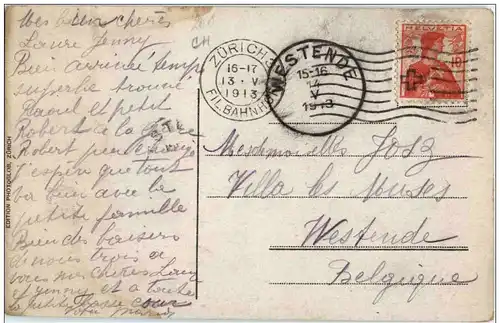 Mes bien chères
Laure Jenny
Bien arrivée temps
superbe trouvé
Raoul et petit
Robert à la gare
Robert
J'espère que tout
va bien avec la
petite famille
Bien des baisers
de nous trois a
vous mes chères Laure
et Jenny et a toute
la petite
votre Maria
CH
ZÜRICH
16-17
13·V
1913
FIL. BAHNHOF
WESTENDE
15-16
14
V
1913
HELVETIA
10
Mesdemoiselles Josz
Villa les Muses
Westende
Belgique
EDITION PHOTOGLOB, ZÜRICH